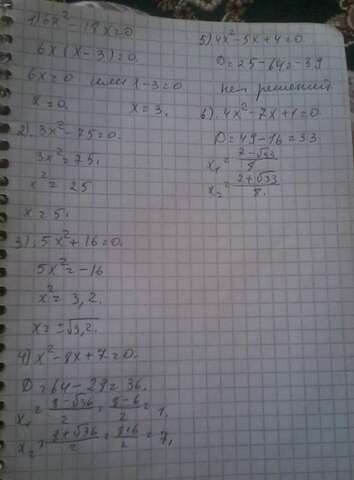 1) 6x² - 18x = 0
6x (x - 3) = 0.
6x = 0 или x - 3 = 0
x = 0. x = 3.
2) 3x² - 75 = 0.
3x² = 75.
x² = 25
x = 5.
3) 5x² + 16 = 0.
5x² = -16
x² = 3,2.
x = ±√3,2.
4) x² - 8x + 7 = 0.
D = 64 - 28 = 36.
x₁ = (8 - √36)/2 = (8 - 6)/2 = 1.
x₂ = (8 + √36)/2 = (8 + 6)/2 = 7.
5) 4x² - 5x + 4 = 0
D = 25 - 64 = -39
нет решений
6) 4x² - 7x + 1 = 0
D = 49 - 16 = 33
x₁ = (7 - √33)/8
x₂ = (7 + √33)/8.